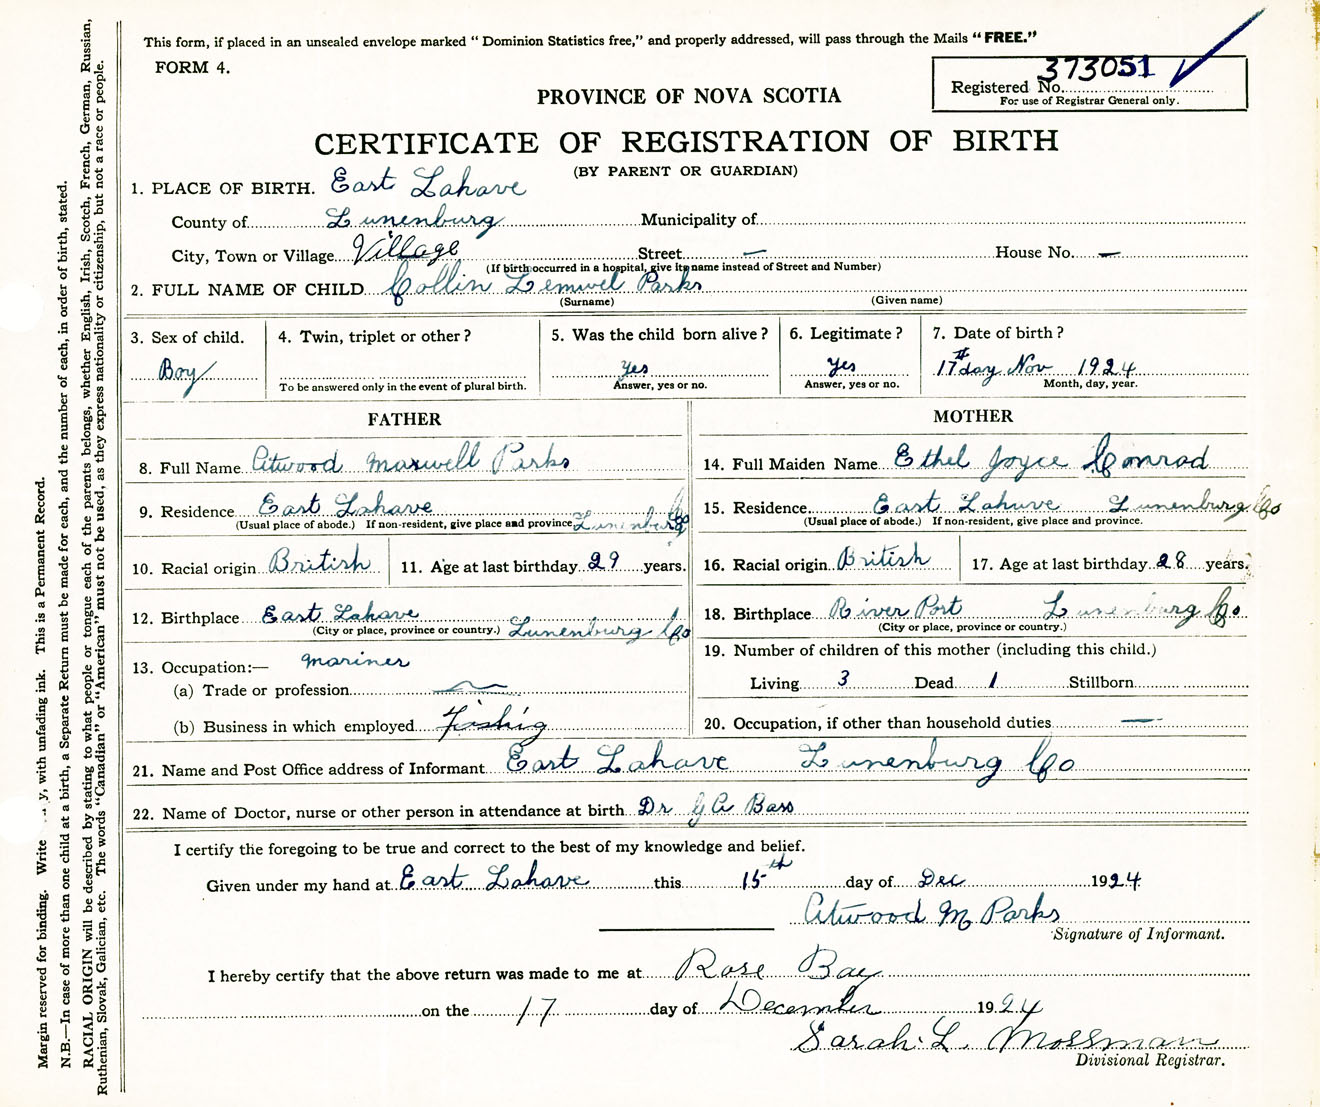 This form, if placed in an unsealed envelope marked "Dominion Statistics free," and properly addressed, will pass through the Mails "FREE."
FORM 4.
373051
Registered No.
For use of Registrar General only.
PROVINCE OF NOVA SCOTIA
CERTIFICATE OF REGISTRATION OF BIRTH
(BY PARENT OR GUARDIAN)
1. PLACE OF BIRTH. East Lahave
County of Lunenburg Municipality of
City, Town or Village Village Street — House No. —
(If birth occurred in a hospital, give its name instead of Street and Number)
2. FULL NAME OF CHILD Collin Lemuel Parks
(Surname) (Given name)
3. Sex of child. 4. Twin, triplet or other? 5. Was the child born alive? 6. Legitimate? 7. Date of birth?
Boy Yes Yes 17th day Nov 1924
To be answered only in the event of plural birth. Answer, yes or no. Answer, yes or no. Month, day, year.
FATHER
8. Full Name Atwood Maxwell Parks
9. Residence East Lahave
(Usual place of abode.) If non-resident, give place and province Lunenburg Co
10. Racial origin British 11. Age at last birthday 29 years.
12. Birthplace East Lahave
(City or place, province or country.) Lunenburg Co
13. Occupation:— Mariner
(a) Trade or profession
(b) Business in which employed Fishig
MOTHER
14. Full Maiden Name Ethel Joyce Conrad
15. Residence. East Lahave Lunenburg Co
(Usual place of abode.) If non-resident, give place and province.
16. Racial origin British 17. Age at last birthday 28 years.
18. Birthplace River Port Lunenburg Co
(City or place, province or country.)
19. Number of children of this mother (including this child.)
Living 3 Dead 1 Stillborn
20. Occupation, if other than household duties —
21. Name and Post Office address of Informant East Lahave Lunenburg Co
22. Name of Doctor, nurse or other person in attendance at birth Dr G A Bass
I certify the foregoing to be true and correct to the best of my knowledge and belief.
Given under my hand at East Lahave this 15th day of Dec 1924
Atwood M Parks
Signature of Informant.
I hereby certify that the above return was made to me at Rose Bay
on the 17 day of December 1924
Sarah L. Mossman
Divisional Registrar.
Margin reserved for binding. Write y, with unfading ink. This is a Permanent Record.
N.B.—In case of more than one child at a birth, a Separate Return must be made for each, and the number of each, in order of birth, stated.
RACIAL ORIGIN will be described by stating to what people or tongue each of the parents belongs, whether English, Irish, Scotch, French, German, Russian,
Ruthenian, Slovak, Galician, etc. The words "Canadian" or "American" must not be used, as they express nationality or citizenship, but not a race or people.